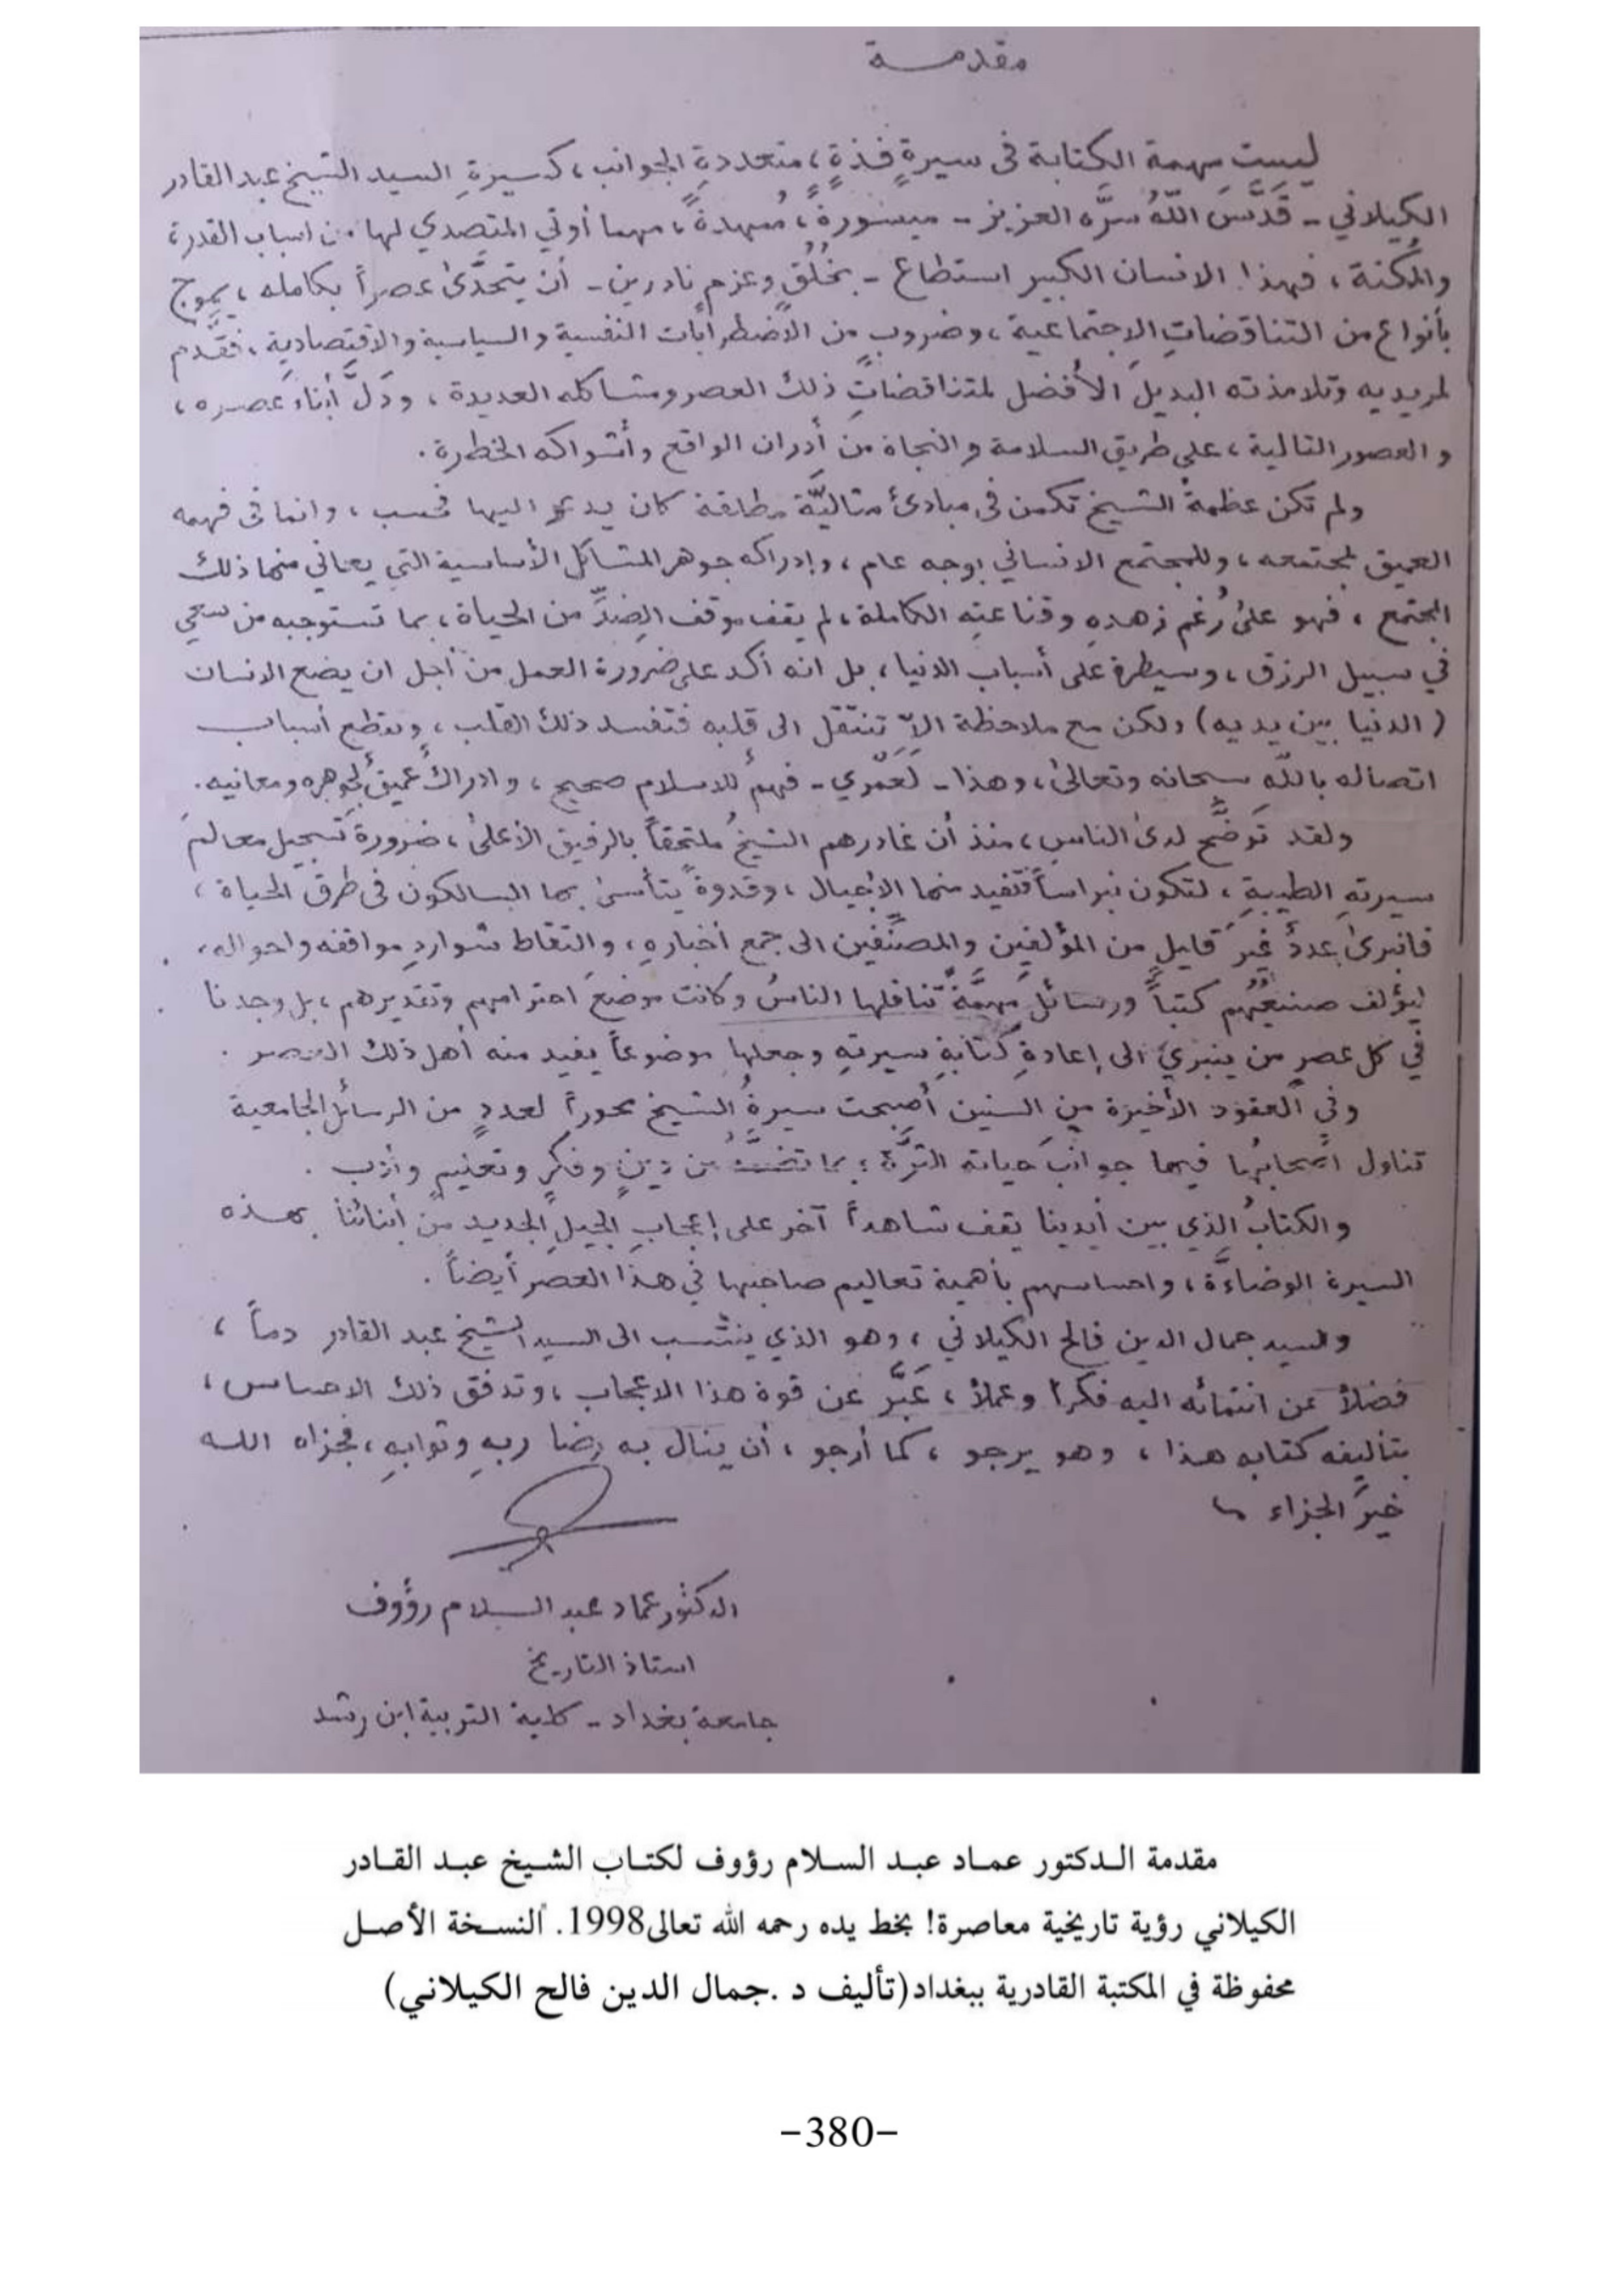 مقدمة
ليست مهمة الكتابة في سيرةٍ فذةٍ، متعددةِ الجوانب، كسيرةِ السيد الشيخ عبد القادر
الكيلاني - قَدَّسَ اللّهُ سرَّه العزيز - ميسورةً، مُمهدةً، مهما أوتي المتصدي لها من اسباب القدرة
والمُكنة، فهذا الانسان الكبير استطاع - بخُلُقٍ وعزمٍ نادرين - أن يتحدَّىٰ عصراً بكامله، يموج
بأنواع من التناقضاتِ الاجتماعية، وضروبٍ من الاضطرابات النفسية والسياسية والاقتصادية، فقَدَّم
لمريديه وتلامذته البديلَ الأفضل لمتناقضاتِ ذلك العصر ومشاكله العديدة، ودَلَّ أبناءَ عصره،
والعصور التالية، على طريق السلامة والنجاة من أدران الواقع وأشواكه الخطرة.
ولم تكن عظمةُ الشيخ تكمن في مبادئ مثاليَّة مطلقة كان يدعو اليها فحسب، وانما في فهمه
العميق لمجتمعه، وللمجتمع الانساني بوجه عام، وإدراكه جوهر المشاكل الأساسية التي يعاني منها ذلك
المجتمع، فهو علىٰ رُغم زهدهِ وقناعته الكاملة، لم يقف موقف الضِدِّ من الحياة، بما تستوجبه من سعي
في سبيل الرزق، وسيطرة على أسباب الدنيا، بل انه أكد على ضرورة العمل من أجل ان يضع الانسان
(الدنيا بين يديه) ولكن مع ملاحظة الاّ تنتقل الى قلبه فتفسد ذلك القلب، وتقطع أسباب
اتصاله باللّه سبحانه وتعالىٰ، وهذا - لَعَمْري - فهمٌ للاسلام صحيح، وادراكٌ عميقٌ لجوهره ومعانيه.
ولقد توضَّح لدىٰ الناس، منذ أن غادرهم الشيخُ ملتحقاً بالرفيق الأعلىٰ، ضرورةُ تسجيل معالمَ
سيرتهِ الطيبةِ، لتكون نبراساً تفيد منها الأجيال، وقدوةً يتأسىٰ بها السالكون في طرق الحياة،
فانبرىٰ عددٌ غيرَ قليل من المؤلفين والمصنِّفين الى جمع أخبارهِ، والتقاط شواردِ مواقفه واحواله،
ليؤلف صنيعُهُم كتباً ورسائلَ مهمَّةً تناقلها الناسُ وكانت موضعَ احترامهم وتقديرهم، بل وجدنا
في كل عصرٍ من ينبري الى إعادةِ كتابةِ سيرتهِ وجعلها موضوعاً يفيد منه أهل ذلك العصر.
وفي العقود الأخيرة من السنين أصبحت سيرةُ الشيخ محوراً لعددٍ من الرسائل الجامعية
تناول اصحابُها فيها جوانبَ حياته الثرَّة؛ بما من دينٍ وفكرٍ وتعليمٍ وأدب.
والكتابُ الذي بين أيدينا يقف شاهداً آخر على إعجابِ الجيل الجديد من أبنائنا بهذه
السيرة الوضاءَة، واحساسهم بأهمية تعاليم صاحبها في هذا العصر أيضاً.
والسيد جمال الدين فالح الكيلاني، وهو الذي ينتسب الى السيد الشيخ عبد القادر دماً،
فضلاً عن انتمائه اليه فكراً وعملاً، عَبَّر عن قوة هذا الاعجاب، وتدفق ذلك الاحساس،
بتأليفه كتابه هذا، وهو يرجو، كما أرجو، أن ينال به رضا ربهِ وثوابهِ، فجزاه الله
خيرَ الجزاء
الدكتور عماد عبد السلام رؤوف
استاذ التاريخ
جامعة بغداد - كلية التربية ابن رشد
مقدمة الدكتور عماد عبد السلام رؤوف لكتاب الشيخ عبد القادر
الكيلاني رؤية تاريخية معاصرة! بخط يده رحمه الله تعالى1998. النسخة الأصل
محفوظة في المكتبة القادرية ببغداد(تأليف د .جمال الدين فالح الكيلاني)
-380-